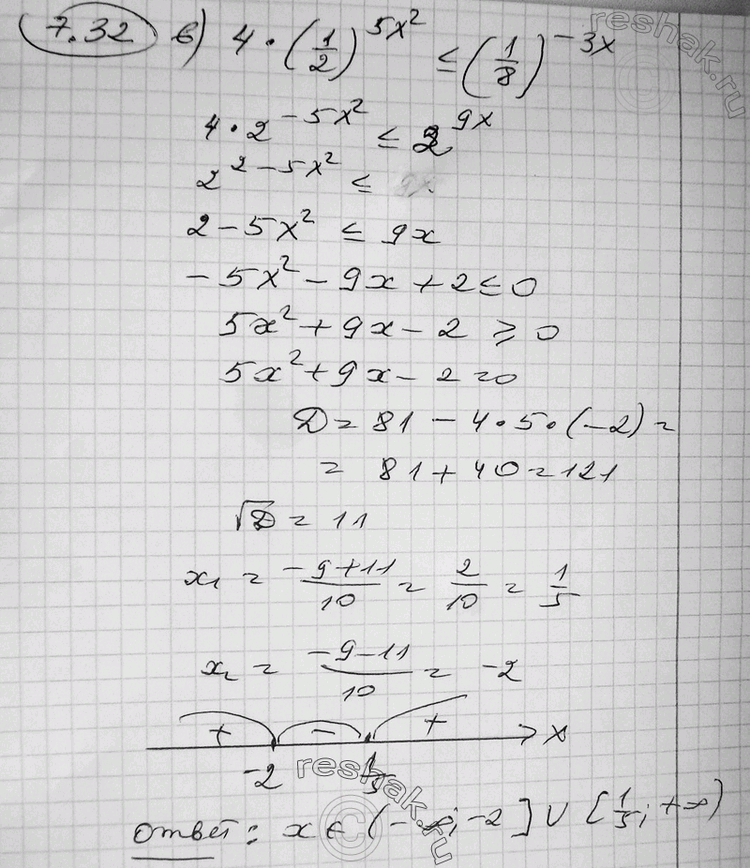 7.32 в) 4 · (1/2)^5x² ≤ (1/8)^-3x
4 · 2^-5x² ≤ 2^9x
2^2-5x² ≤ 9x
2 - 5x² ≤ 9x
-5x² - 9x + 2 ≤ 0
5x² + 9x - 2 ≥ 0
5x² + 9x - 2 = 0
D = 81 - 4 · 5 · (-2) =
= 81 + 40 = 121
√D = 11
x₁ = (-9+11)/10 = 2/10 = 1/5
x₂ = (-9-11)/10 = -2
+ - + x
-2 1/5
Ответ: x ∈ (-∞; -2] ∪ [1/5; +∞)
reshak.ru
reshak.ru